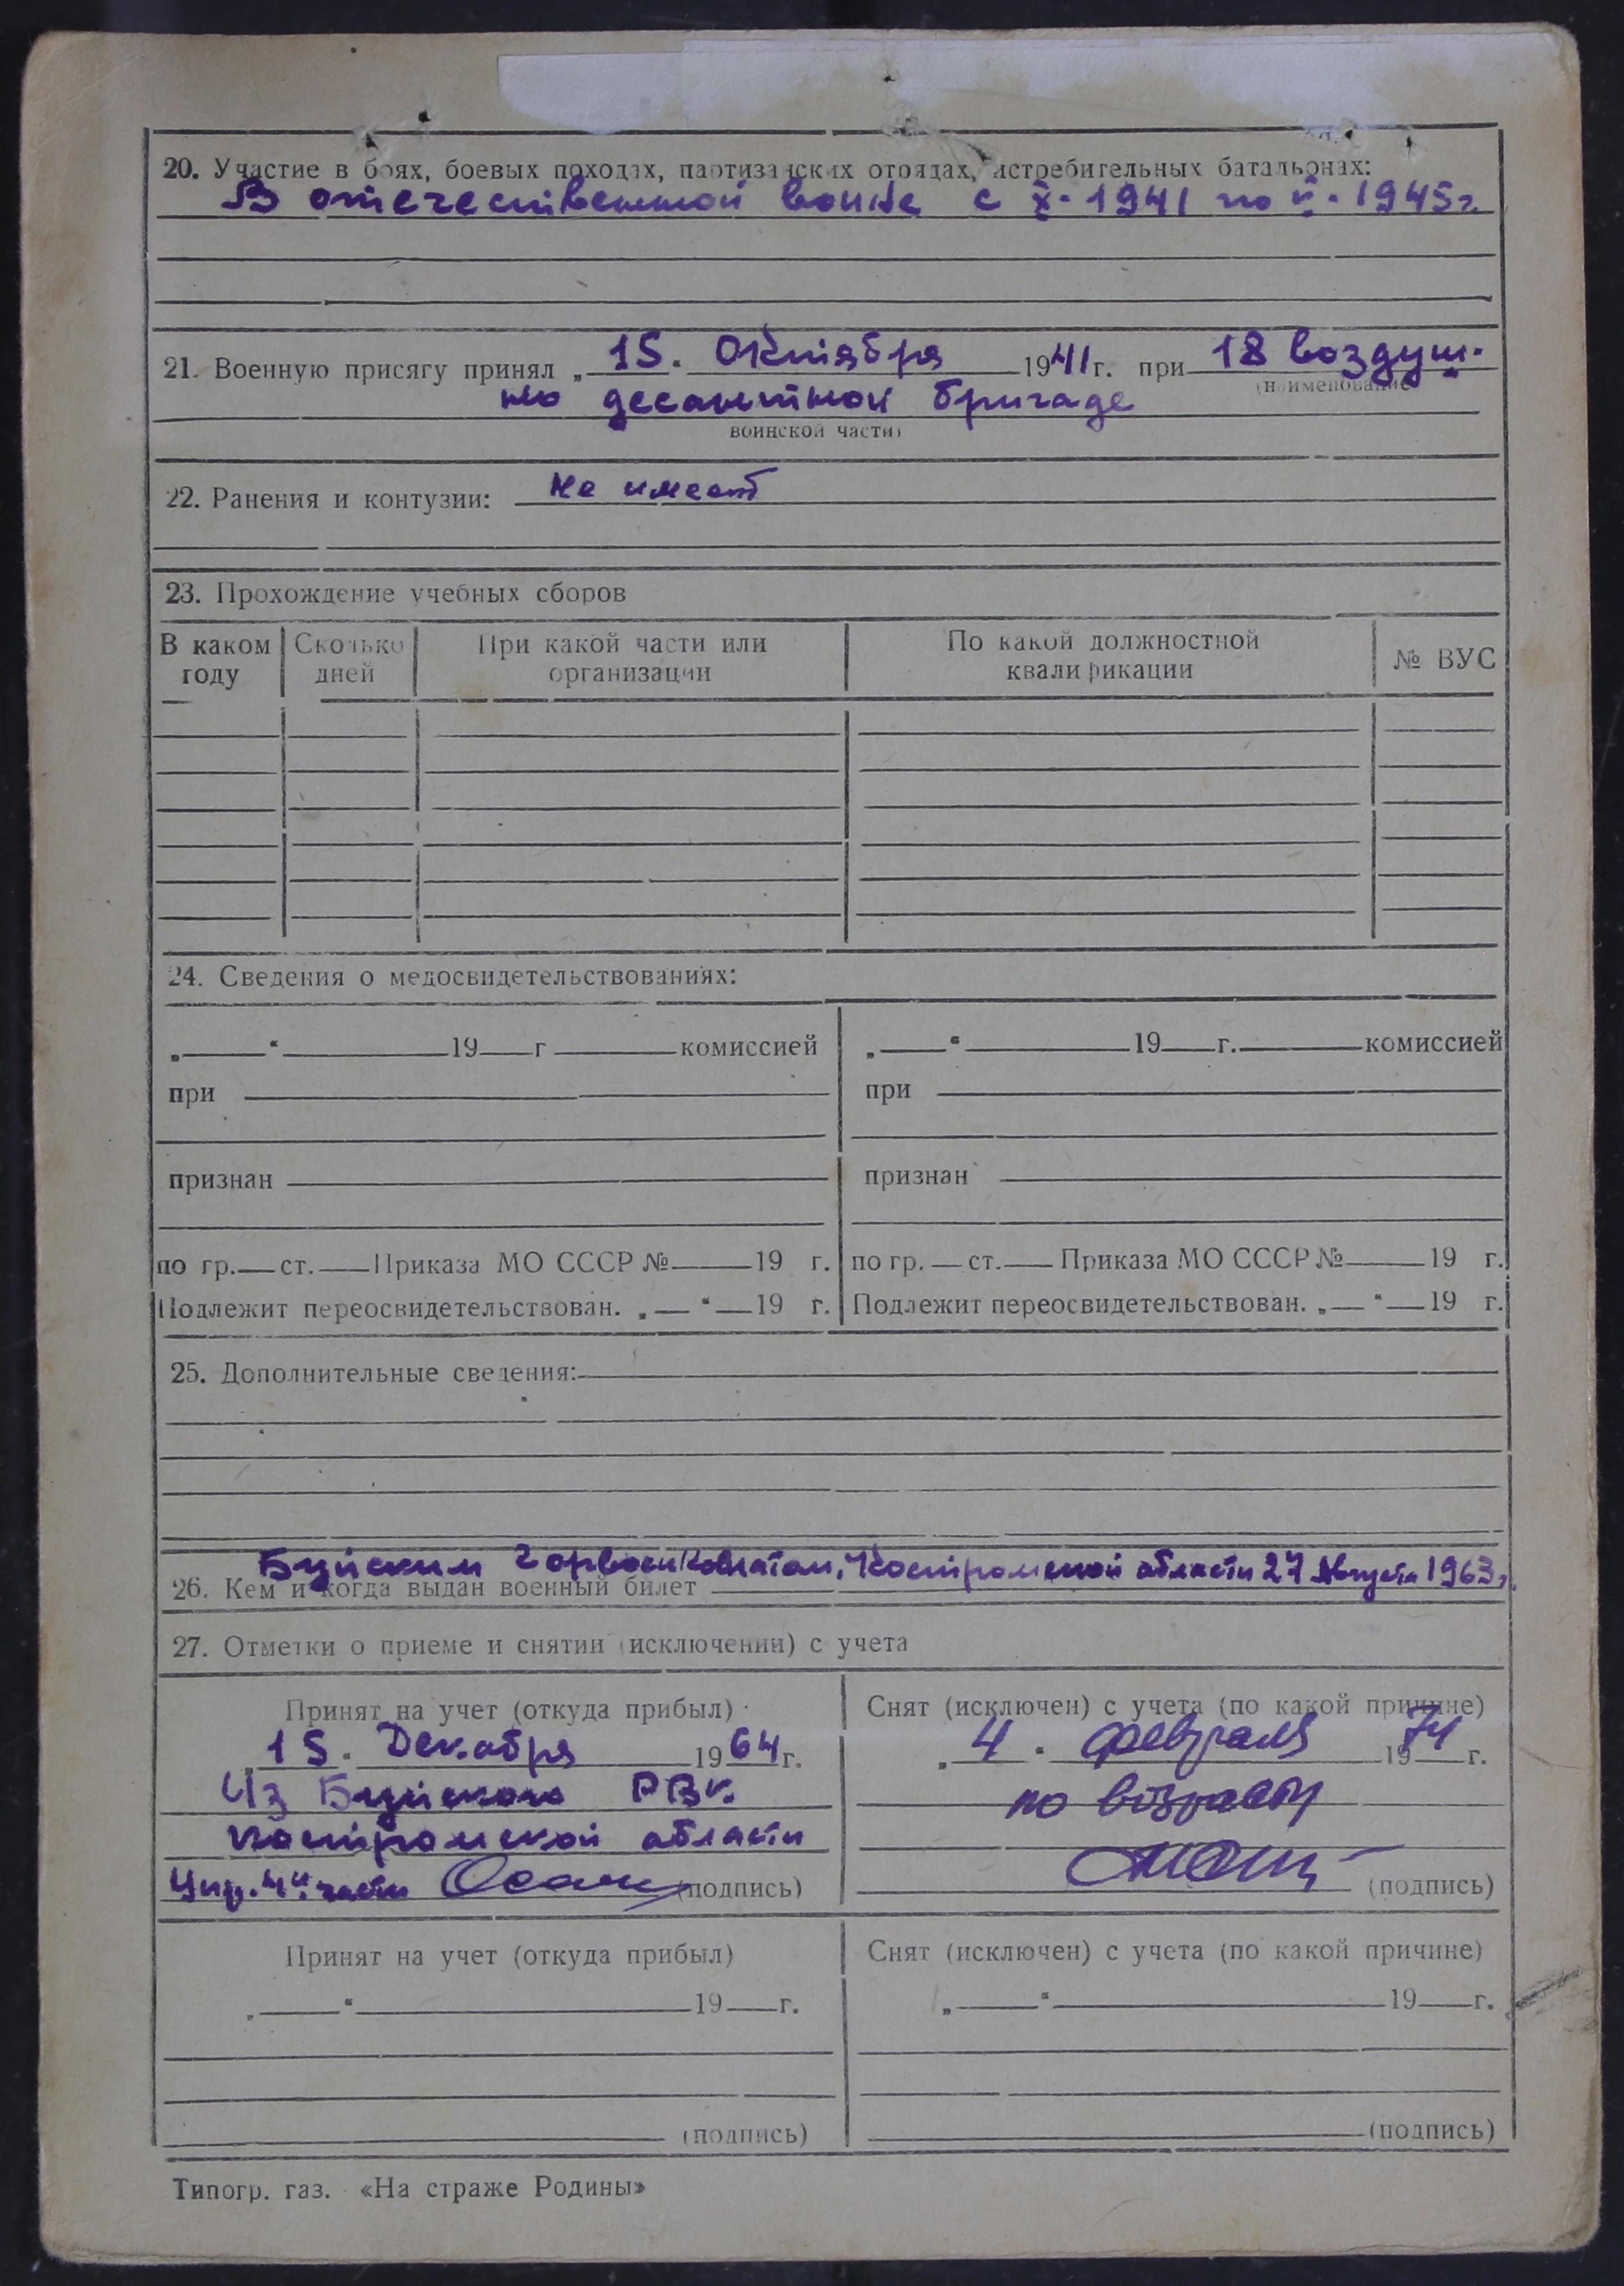 20. Участие в боях, боевых походах, партизанских отрядах, истребительных батальонах:
В отечественной войне с X-1941 по V-1945г.
21. Военную присягу принял „15" Октября 1941г. при 18 воздуш-
(наименование
но десантной бригаде
воинской части)
22. Ранения и контузии: Не имеет
23. Прохождение учебных сборов
В каком году Сколько дней При какой части или организации По какой должностной квалификации № ВУС
24. Сведения о медосвидетельствованиях:
„ “ 19 г комиссией „ “ 19 г. комиссией
при при
признан признан
по гр. ст. Приказа МО СССР № 19 г. по гр. ст. Приказа МО СССР № 19 г.
Подлежит переосвидетельствован. „ “ 19 г. Подлежит переосвидетельствован. „ “ 19 г.
25. Дополнительные сведения:
Буйским Горвоенкоматом, Костромской области 27 Августа 1963г.
26. Кем и когда выдан военный билет
27. Отметки о приеме и снятии (исключении) с учета
Принят на учет (откуда прибыл) Снят (исключен) с учета (по какой причине)
„15" Декабря 1964г. „4" февраля 1974 г.
Из Буйского РВК по возрасту
Костромской области
4й части (подпись) (подпись)
Принят на учет (откуда прибыл) Снят (исключен) с учета (по какой причине)
„ “ 19 г. „ “ 19 г.
(подпись) (подпись)
Типогр. газ. «На страже Родины»